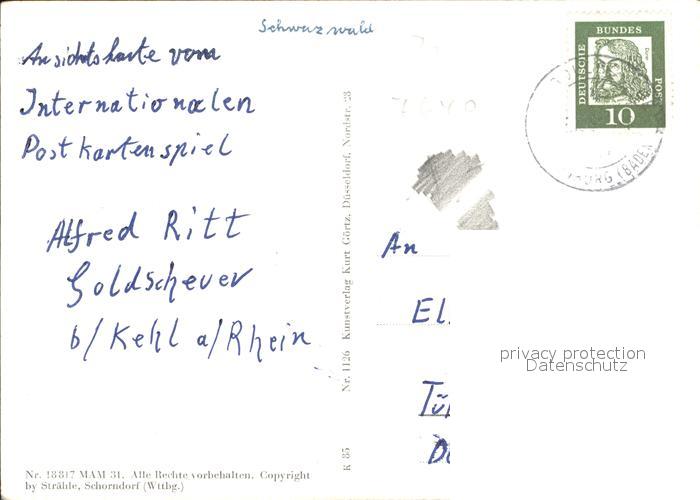 Schwarzwald
Ansichtskarte vom
Internationalen
Postkartenspiel
Alfred Ritt
Goldscheuer
b/Kehl a/Rhein
Nr. 18817 MAM 31. Alle Rechte vorbehalten. Copyright
by Strähle, Schorndorf (Wttbg.)
K 85 Nr. 1126 Kunstverlag Kurt Görtz, Düsseldorf, Nordstr. 23
DEUTSCHE BUNDES POST
10
BURG (BADEN
An
El.
Tü
privacy protection
Datenschutz